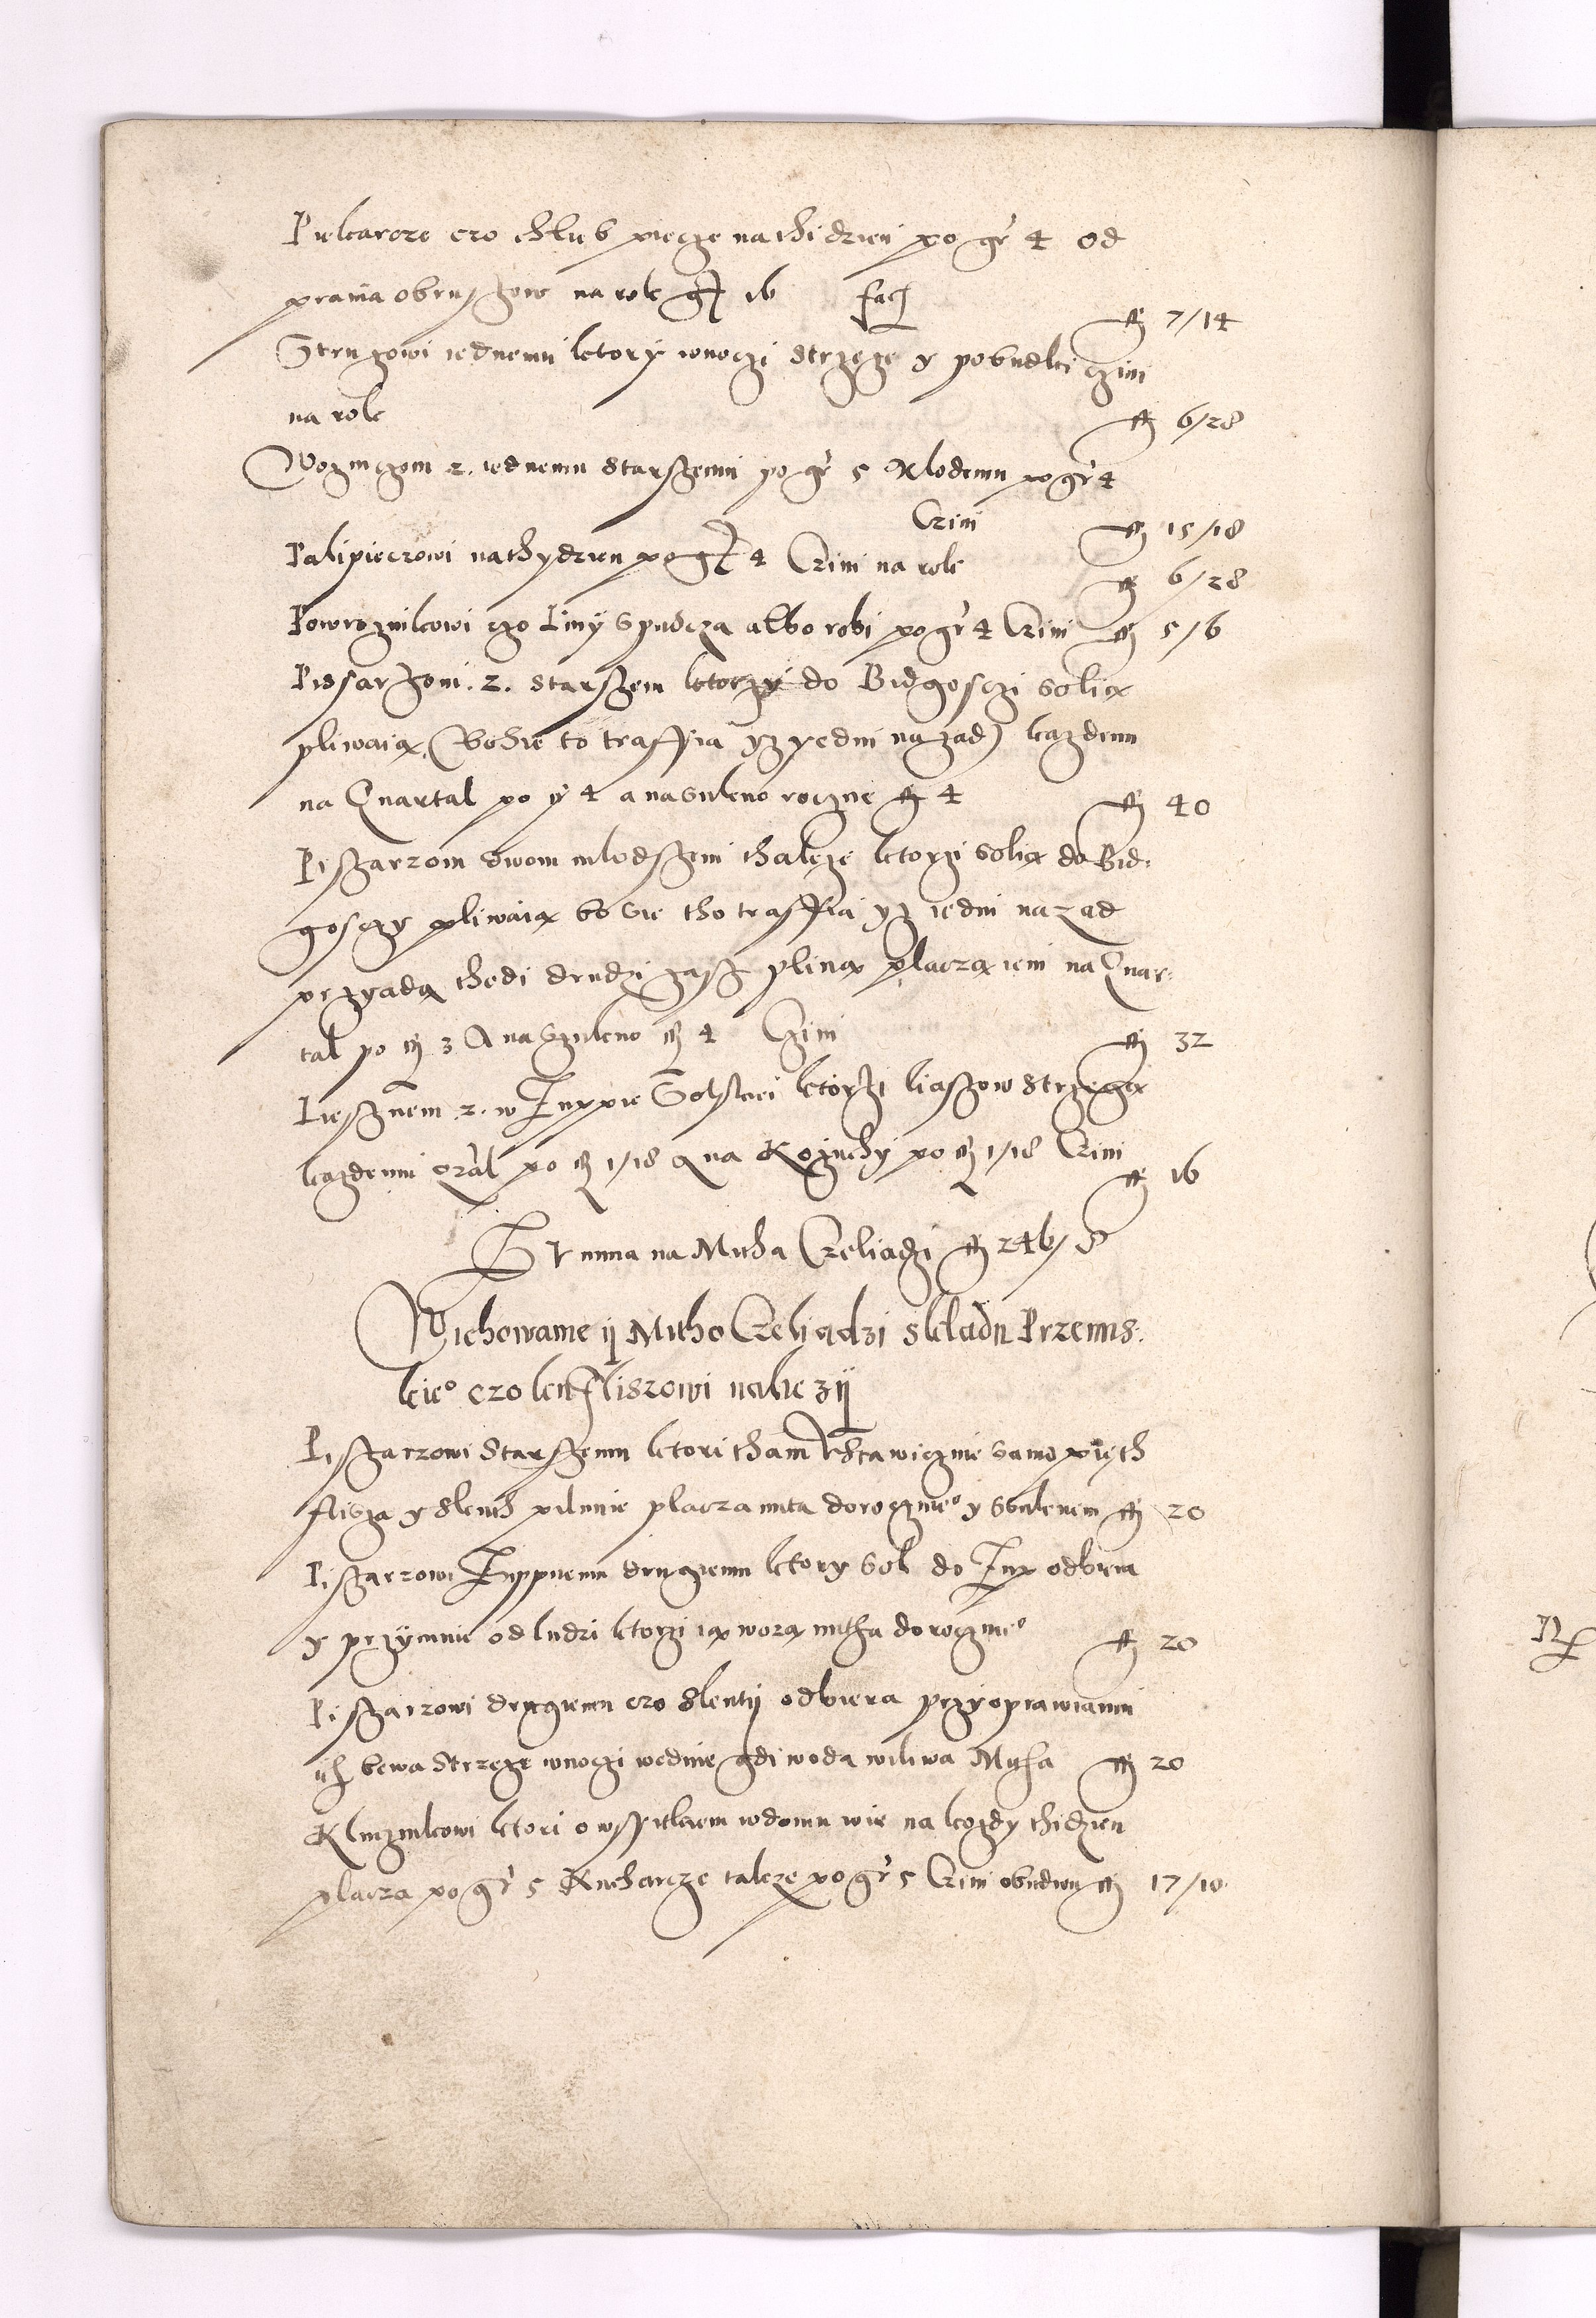 Piekarcze czo chlieb piecze na thidzien po gr 4 od
prania obrussow na rok gr 16 fac
fl 7/14
Strugowi iednemu ktory wnoczi strzeze y pobudki czini
na rok fl 6/28
Woznczom 2. iednemu starszemu po gr 5 Mlodemu po gr 4
Czini fl 15/18
Palipieczowi na thydzien po gr 4 Czini na rok fl 6/28
Powroznikowi czo Liny spudcza albo robi po gr 4 Czini fl 5/6
Pissarzom. 2. starszem ktorzy do Bidgosczi solią
pliwaią (Bo sie to traffia yz yedni nazad) kazdemu
na Quartal po fl 4 a na sukno rocznie fl 4 fl 40
Piszarzom dwom mlodszem thakze ktorzi solią do Bid:
gosczy pliwaią bo sie tho traffia yz iedni nazad
przyadą thedi drudzi zasz plyną placzą iem na Quar:
tal po fl 3 A na szukno fl 4 Czini fl 32
Liesznem 2. w Zuppie Solskiei ktorzi liassow strzegą
kazdemu qral po fl 1/18 a na Kozuchy po fl 1/18 Czini
fl 16
Summa na Mitha Czeliadzi fl 246/8
Wichowanie ij Mitho Czeliadzi skladu Przemis:
kieo czo ku fliszowi nalezij
Piszarzowi Starszemu ktori tham Vstawicznie samopieth
flisza y skuth pilnuie placza mita doroczneo y s suknem fl 20
Piszarzowi Zuppnemu drugiemu ktory sol do Zup odbiera
y przymuie od ludzi ktorzi ią wozą mitha doroczneo fl 20
Piszarzowi drugiemu czo skutij odbiera przy oprawianiu
ich bewa Strzeze wnoczi wednie gdi woda wiliwa Mitha fl 20
Kluznikowi ktori o wszitkiem w domu wie na kozdy thidzien
placza po gr 5 Kucharcze takze po gr 5 Czini obudwu fl 17/10